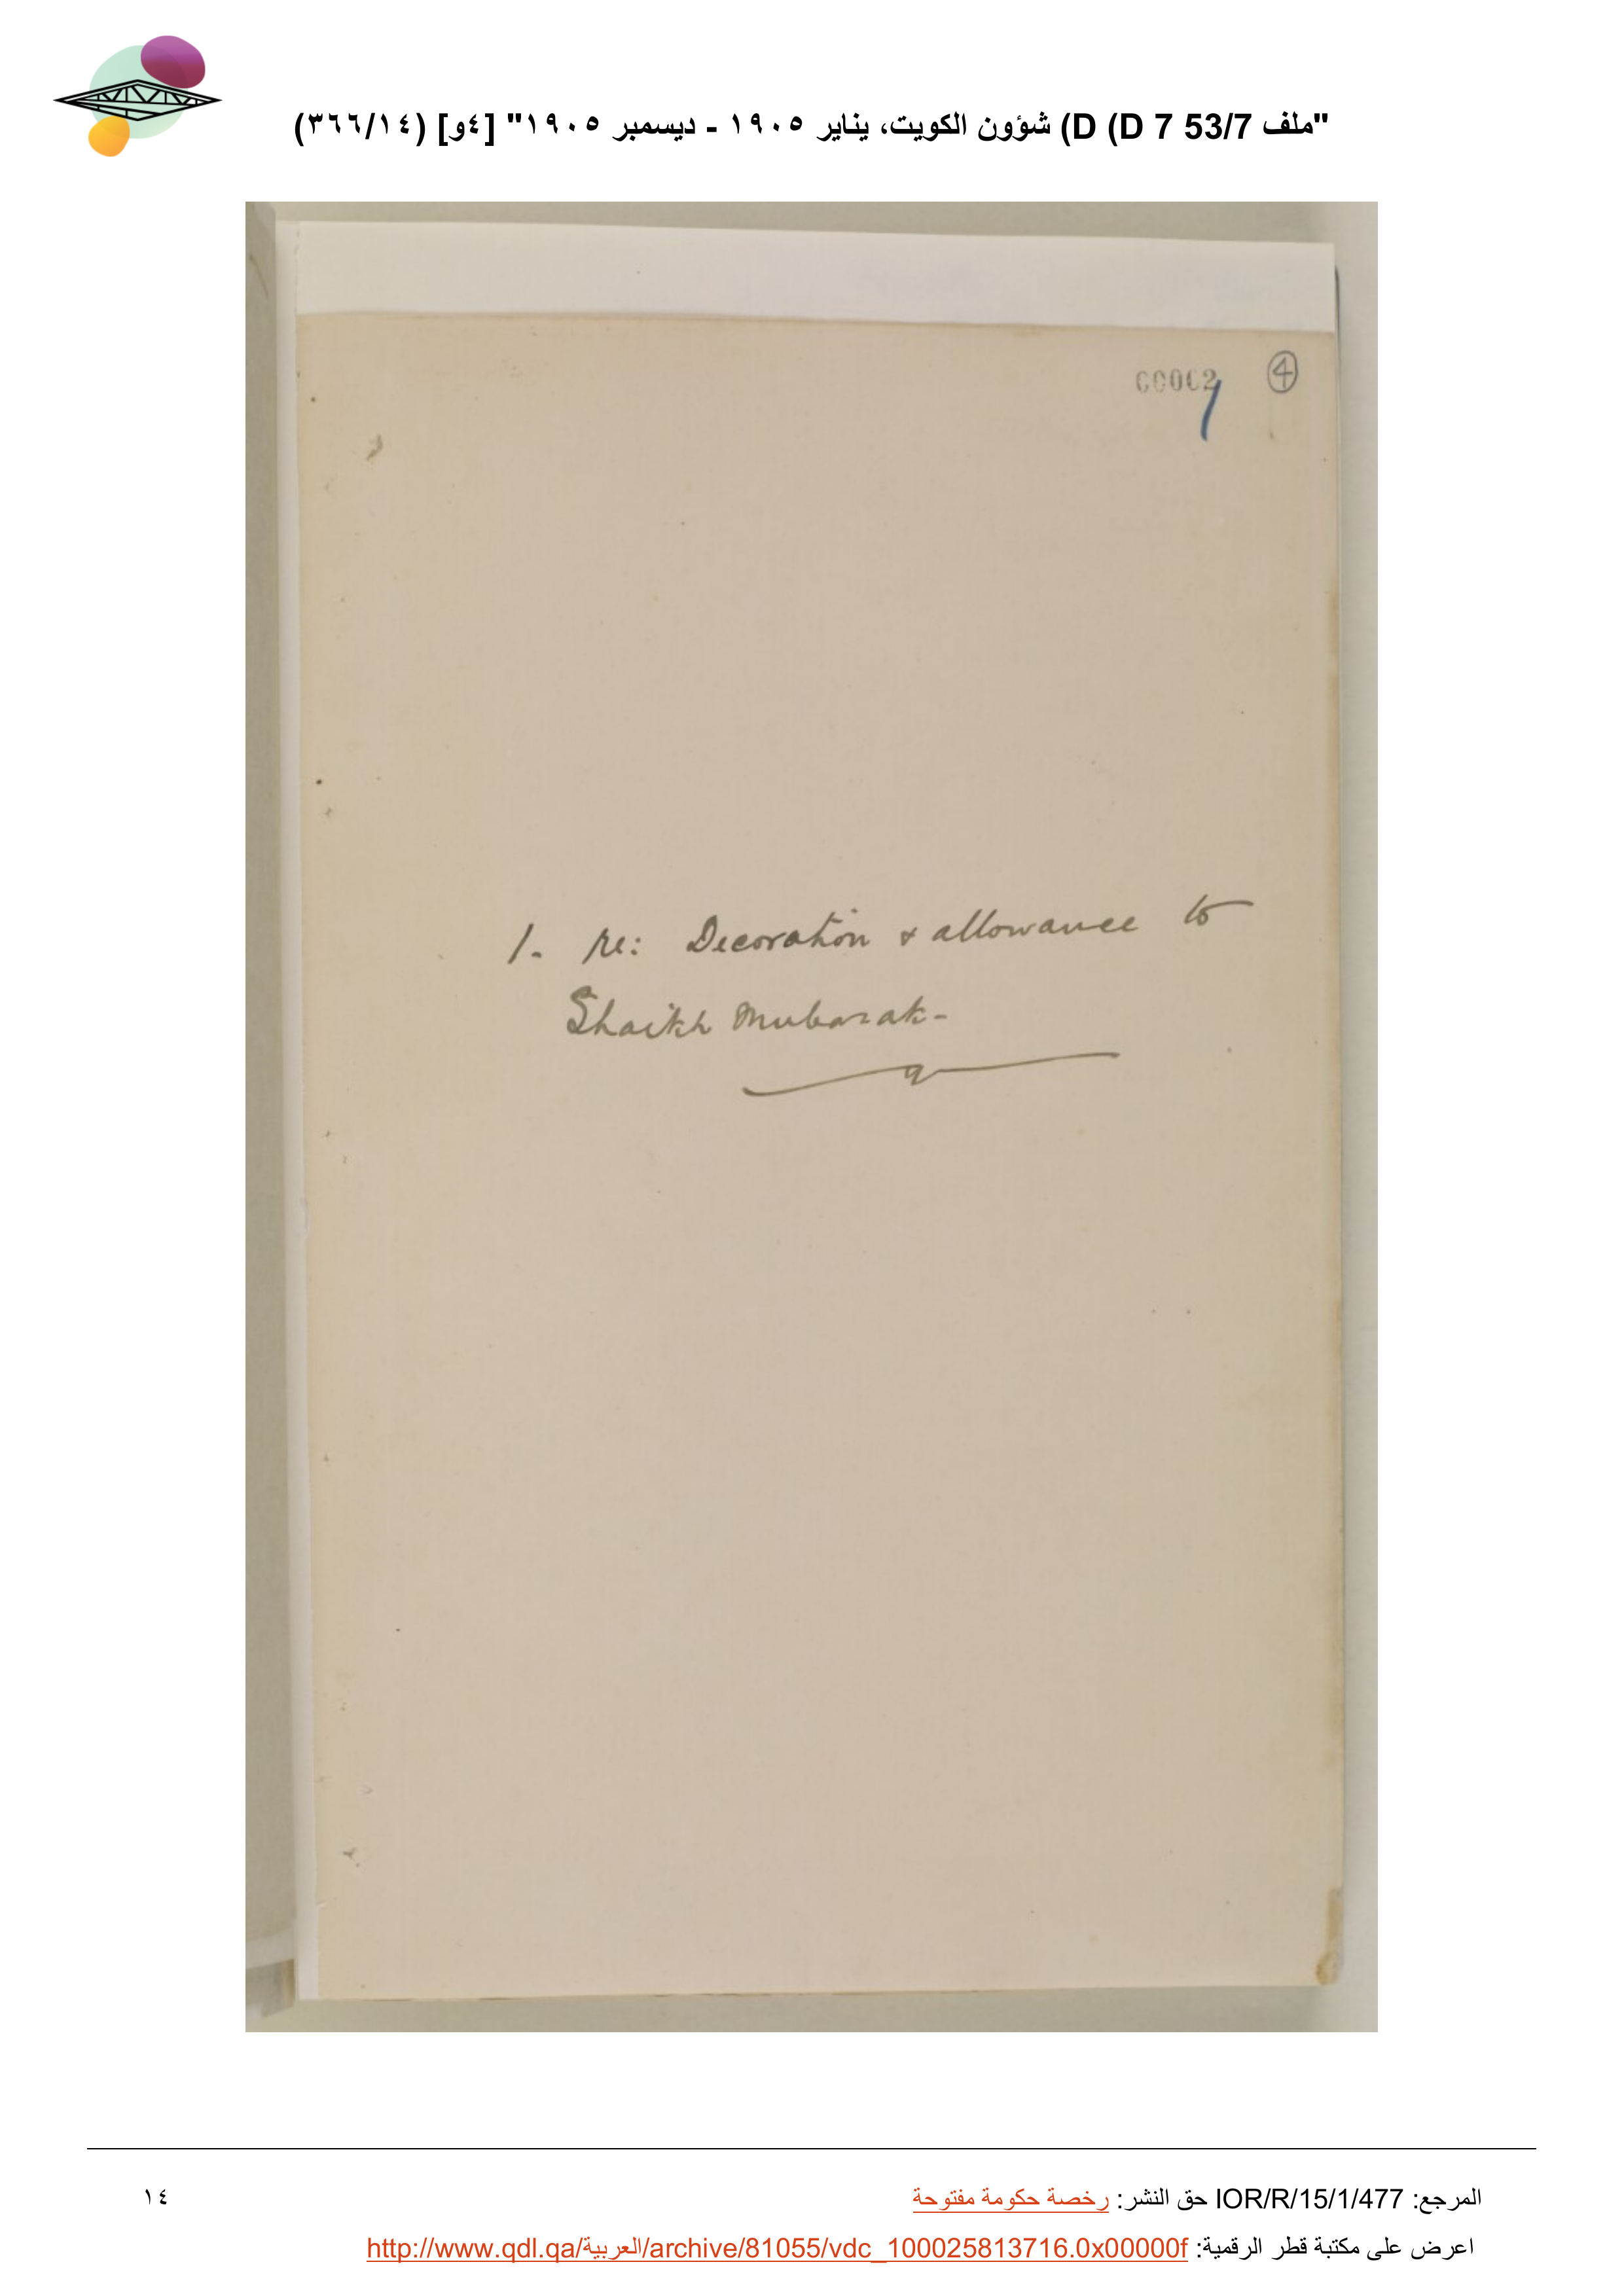 "ملف 53/7 D 7) D) شؤون الكويت، يناير ١٩٠٥ - ديسمبر ١٩٠٥" [٤و] (٣٦٦/١٤)
00002
4
1
1. re: Decoration & allowance to
Shaikh Mubarak-
المرجع: IOR/R/15/1/477 حق النشر: رخصة حكومة مفتوحة
١٤
اعرض على مكتبة قطر الرقمية: http://www.qdl.qa/العربية/archive/81055/vdc_100025813716.0x00000f